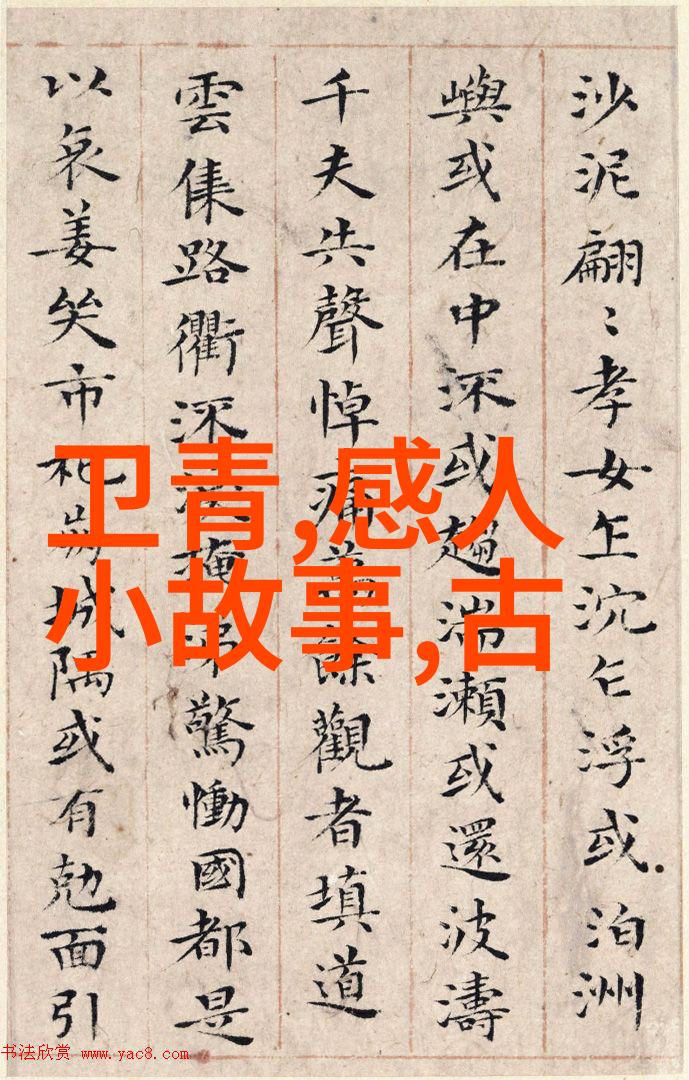 沙泥翩〻孝女乍沉乍浮或泊洲
嶼或在中深或趨湍瀨或還波濤
千夫共聲悼痛萬餘觀者填道
雲集路衢深淚掩涕驚慟國都是
以哀姜哭市杞崩城隅或有勀面引
卫青,感人
小故事,古
书法欣赏 www.yac8.com